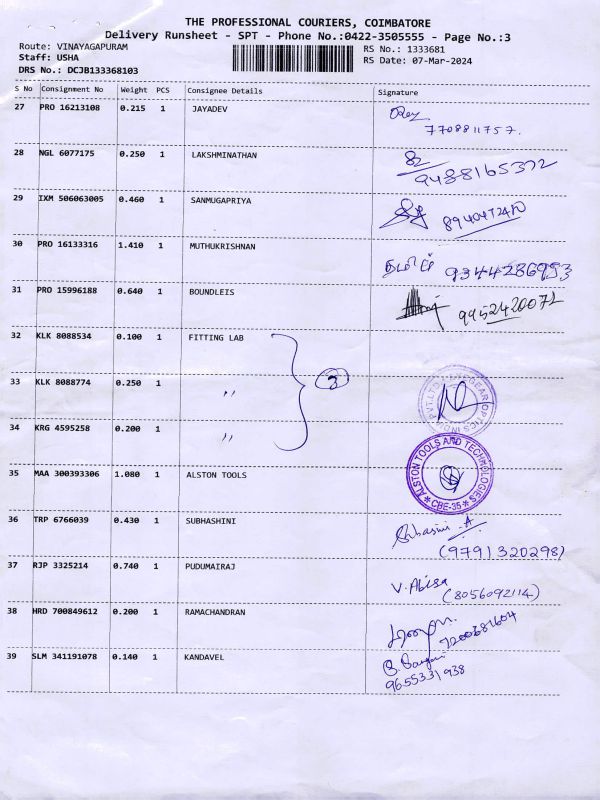 THE PROFESSIONAL COURIERS, COIMBATORE
Delivery Runsheet - SPT - Phone No.:0422-3505555 - Page No.:3
Route: VINAYAGAPURAM
RS No.: 1333681
Staff: USHA
RS Date: 07-Mar-2024
DRS No.: DCJB133368103
S No Consignment No Weight PCS Consignee Details Signature
27 PRO 16213108 0.215 1 JAYADEV
7708811757.
28 NGL 6077175 0.250 1 LAKSHMINATHAN
9488165372
29 IXM 506063005 0.460 1 SANMUGAPRIYA
30 PRO 16133316 1.410 1 MUTHUKRISHNAN
9344286953
31 PRO 15996188 0.640 1 BOUNDLEIS
9952420072
32 KLK 8088534 0.100 1 FITTING LAB
3
33 KLK 8088774 0.250 1 "
34 KRG 4595258 0.200 1 "
35 MAA 300393306 1.080 1 ALSTON TOOLS
ALSTON TOOLS AND TECHNOLOGIES
* CBE-35 *
36 TRP 6766039 0.430 1 SUBHASHINI
Subasini. A
(9791320298)
37 RJP 3325214 0.740 1 PUDUMAIRAJ
V. Abisa
(8056092114)
38 HRD 700849612 0.200 1 RAMACHANDRAN
7200681604
39 SLM 341191078 0.140 1 KANDAVEL
9655331938